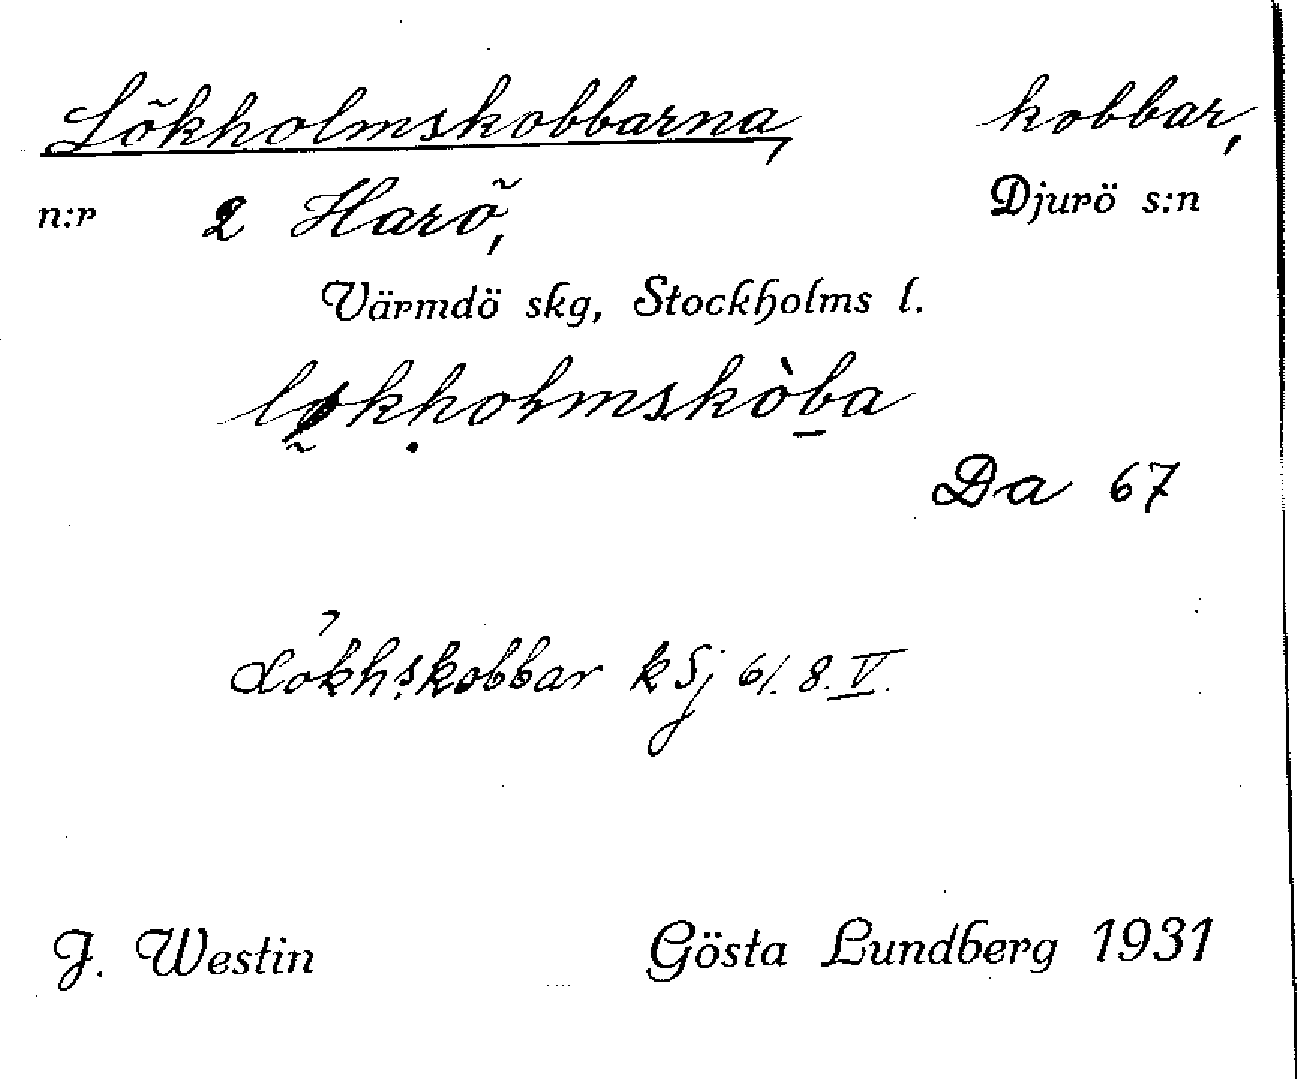 Lökholmskobbarna, kobbar,
n:r 2 Harö, Djurö s:n
Värmdö skg, Stockholms l.
lø̰kḥołmskòb̲a
Da 67
Lökhskobbar kSj 61. 8. V.
J. Westin Gösta Lundberg 1931